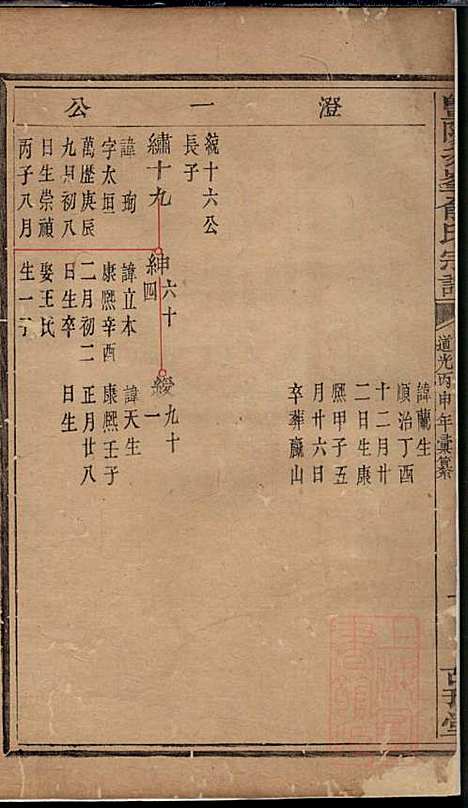 暨陽次峯俞氏宗譜
道光丙申年彙纂
澄一公
諱蘭生
順治丁酉
十二月廿
二日生康
熙甲子五
月廿六日
卒葬麗山
統十六公
長子
繡十九
諱珣
字太垣
萬歷庚辰
九月初八
日生崇禎
丙子八月
紳六十四
諱立本
康熙辛酉
二月初二
日生卒
娶王氏
生一子
綬九十一
諱天生
康熙壬子
正月廿八
日生